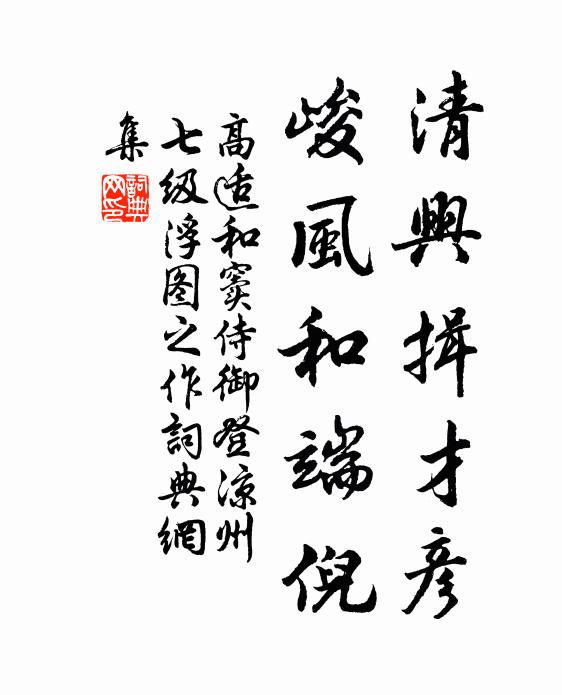 清興揖才彥
峻風和端倪
高适和竇侍御登涼州
七級浮图之作詞典網
集
詞典网印